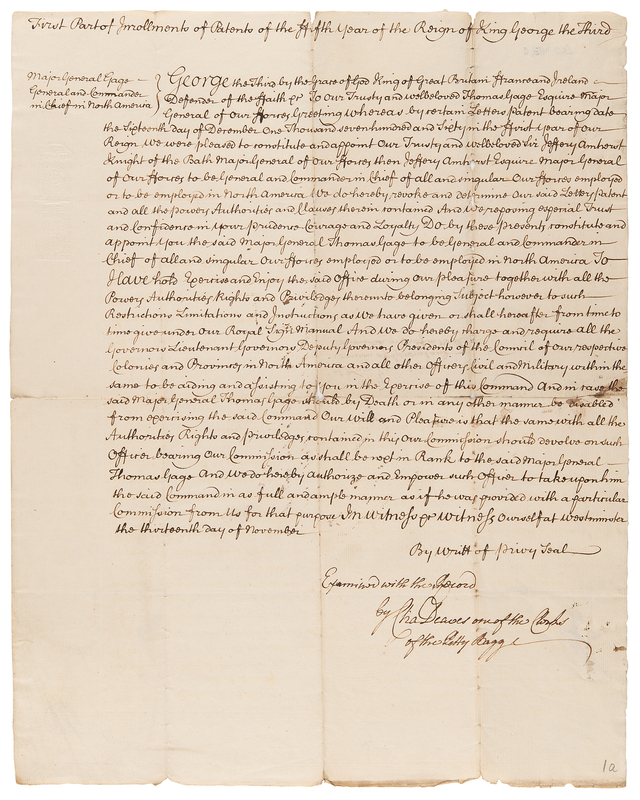 First Part of Inrollments of Patents of the ffifth Year of the Reign of King George the Third
Major General Gage
General and Commander
in Chief in North America
George the Third by the Grace of God King of Great Britain France and Ireland
Defender of the ffaith &c To Our Trusty and welbeloved Thomas Gage Esquire Major
General of Our fforces Greeting whereas by certain Letters Patent bearing date
the Sixteenth day of December One Thousand seven hundred and Sixty in the ffirst year of Our
Reign We were pleased to constitute and appoint Our Trusty and welbeloved Sir Jeffery Amherst
Knight of the Bath Major General of Our fforces then Jeffery Amherst Esquire Major General
of Our fforces to be General and Commander in Chief of all and singular Our fforces employed
or to be employed in North America We do hereby revoke and determine Our said Letters Patent
and all the Powers Authorities and Clauses therein contained And we reposing especial Trust
and Confidence in your prudence Courage and Loyalty Do by these presents constitute and
appoint You the said Major General Thomas Gage to be General and Commander in
Chief of all and singular Our fforces employed or to be employed in North America To
Have hold Exercise and Enjoy the said Office during Our pleasure together with all the
Powers Authorities Rights and Priviledges thereunto belonging Subject however to such
Restrictions Limitations and Instructions as We have given or shall hereafter from time to
time give under Our Royal Sign Manual And we do hereby charge and require all the
Governors Lieutenant Governors Deputy Governors Presidents of the Council of Our respective
Colonies and Provinces in North America and all other Officers Civil and Military within the
same to be aiding and assisting to You in the Exercise of this Command And in case the
said Major General Thomas Gage should by Death or in any other manner be disabled
from exercising the said Command Our will and Pleasure is that the same with all the
Authorities Rights and priviledges contained in this Our Commission should devolve on such
Officer bearing Our Commission as shall be next in Rank to the said Major General
Thomas Gage And we do hereby Authorize and Empower such Officer to take upon him
the said Command in as full and ample manner as if he was provided with a particular
Commission from Us for that purpose In Witness &c Witness Ourself at Westminster
the thirteenth day of November
By Writt of Privy Seal
Examined with the Record
by Cha Deaves one of the Clerks
of the Petty Bagg
1a